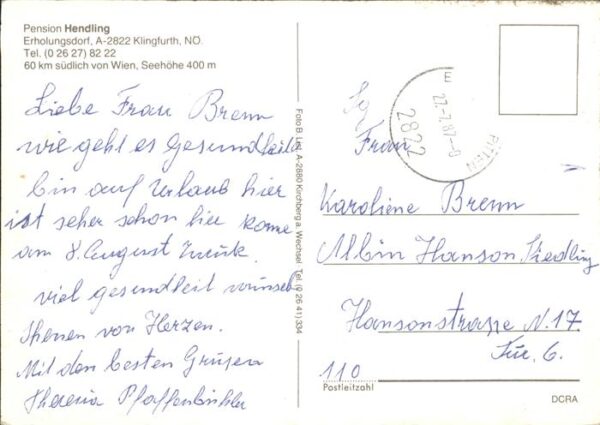 Pension Hendling
Erholungsdorf, A-2822 Klingfurth, NÖ.
Tel. (0 26 27) 82 22
60 km südlich von Wien, Seehöhe 400 m
Liebe Frau Brenn
wie geht es Gesundheitli
bin auf Urlaub hier
ist seher schon hier kome
am 8. August zurük.
viel gesundheit wünsch
Ihenen von Herzen.
Mit den besten Grüsen
Theresia Pfaffenbichler
Foto B. List, A-2880 Kirchberg a. Wechsel Tel. (0 26 41) 334
E
27.-7.87-0
2822
PITTEN
Sg
Frau
Karoliene Brenn
Albin Hanson Siedling
Hansonstrasse N. 17
Tür. 6.
110
Postleitzahl
DCRA